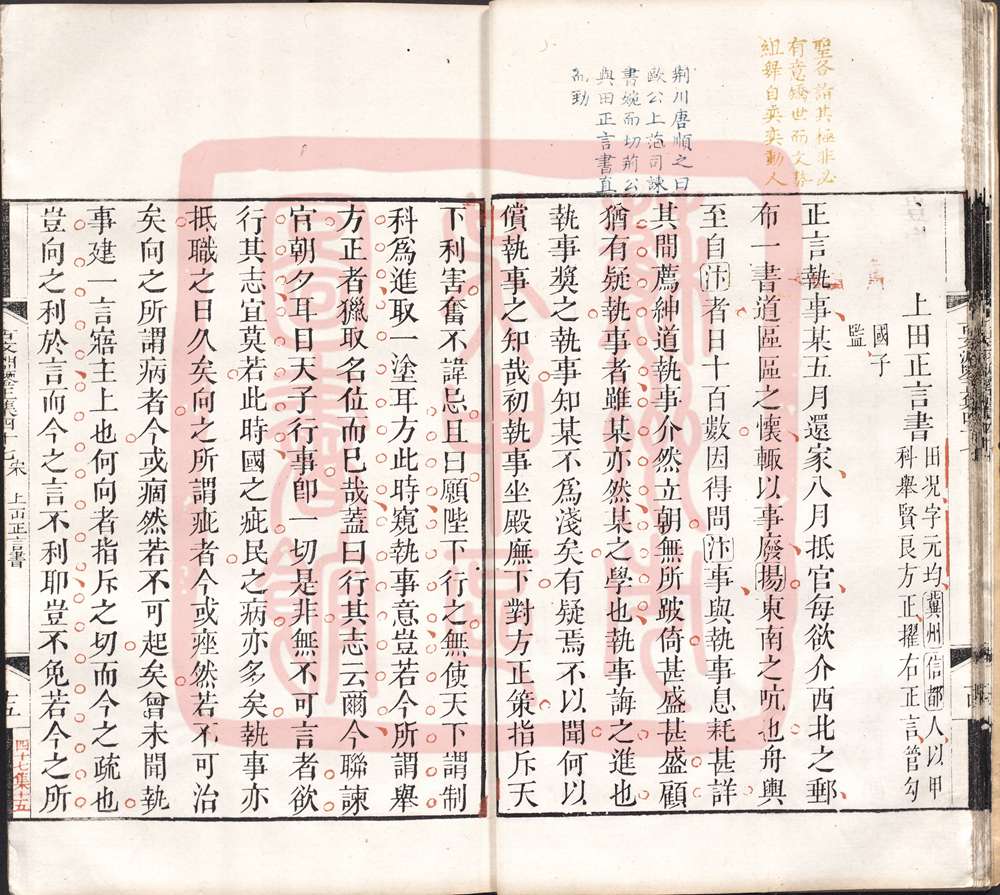 聖各詣其極非必
有意矯世而文勢
組舜自奕奕動人
荆川唐順之曰
歐公上范司諫
書婉而切荊公
與田正言書直
而勁
上田正言書
田況字元均冀州信都人以甲
科舉賢良方正擢右正言管勾
國子
監
正言執事某五月還家八月抵官每欲介西北之郵
布一書道區區之懷輒以事廢揚東南之吭也舟輿
至自汴者日十百數因得問汴事與執事息耗甚詳
其間薦紳道執事介然立朝無所跛倚甚盛甚盛顧
猶有疑執事者雖某亦然某之學也執事誨之進也
執事奬之執事知某不爲淺矣有疑焉不以聞何以
償執事之知哉初執事坐殿廡下對方正策指斥天
下利害奮不諱忌且曰願陛下行之無使天下謂制
科爲進取一塗耳方此時窺執事意豈若今所謂舉
方正者獵取名位而已哉蓋曰行其志云爾今聯諫
官朝夕耳目天子行事卽一切是非無不可言者欲
行其志宜莫若此時國之疵民之病亦多矣執事亦
抵職之日久矣向之所謂疵者今或痤然若不可治
矣向之所謂病者今或痼然若不可起矣曾未聞執
事建一言寤主上也何向者指斥之切而今之疏也
豈向之利於言而今之言不利耶豈不免若今之所
宋
上田正言書
十五
四十七集十五